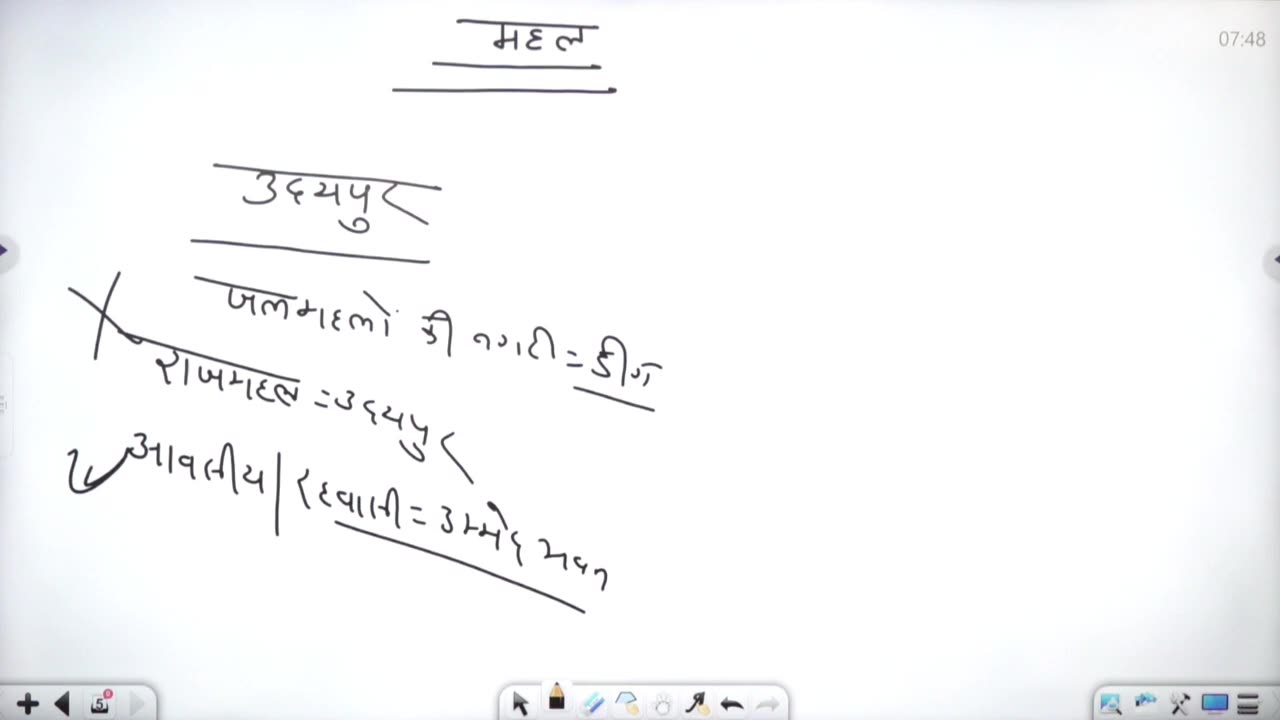 07:48
महल
उदयपुर
जलमहलों की नगरी = डीग
राजमहल = उदयपुर
आवासीय | रहवासी = उम्मेद भवन
5